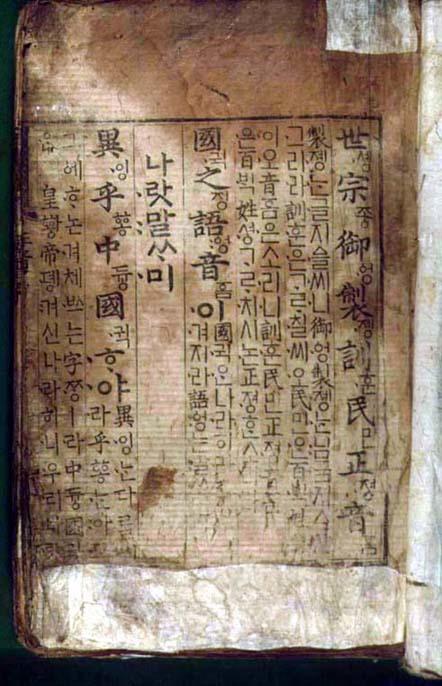 世솅宗종御ᅌᅥᆼ製졩訓훈民민正졍音
製졩ᄂᆞᆫ글지ᅀᅳᆯ씨니御ᅌᅥᆼ製졩ᄂᆞᆫ님금지ᅀᅳ샨
그리라訓훈은ᄀᆞᄅᆞ칠씨오民민ᄋᆞᆫ百ᄇᆡᆨ姓
이오音ᅙᅳᆷ은소리니訓훈民민正졍音ᅙᅳᆷ
은百ᄇᆡᆨ姓셩ᄀᆞᄅᆞ치시논正졍ᄒᆞᆫ
國귁之징語ᅌᅥᆼ音ᅙᅳᆷ이
國귁ᄋᆞᆫ나라히라
겨지라語ᅌᅥᆼᄂᆞᆫ
나랏말ᄊᆞ미
異잉乎ᅘᅩᆼ中듕國귁ᄒᆞ야
異잉ᄂᆞᆫ다ᄅᆞᆯ씨
라乎ᅘᅩᆼᄂᆞᆫ아
그ᅌᅦᄒᆞ논겨체ᄡᅳᄂᆞᆫ字ᄍᆞᆼㅣ라中듕國귁
ᄋᆞᆫ皇ᅘᅪᆼ帝뎽겨신나라히니우리나